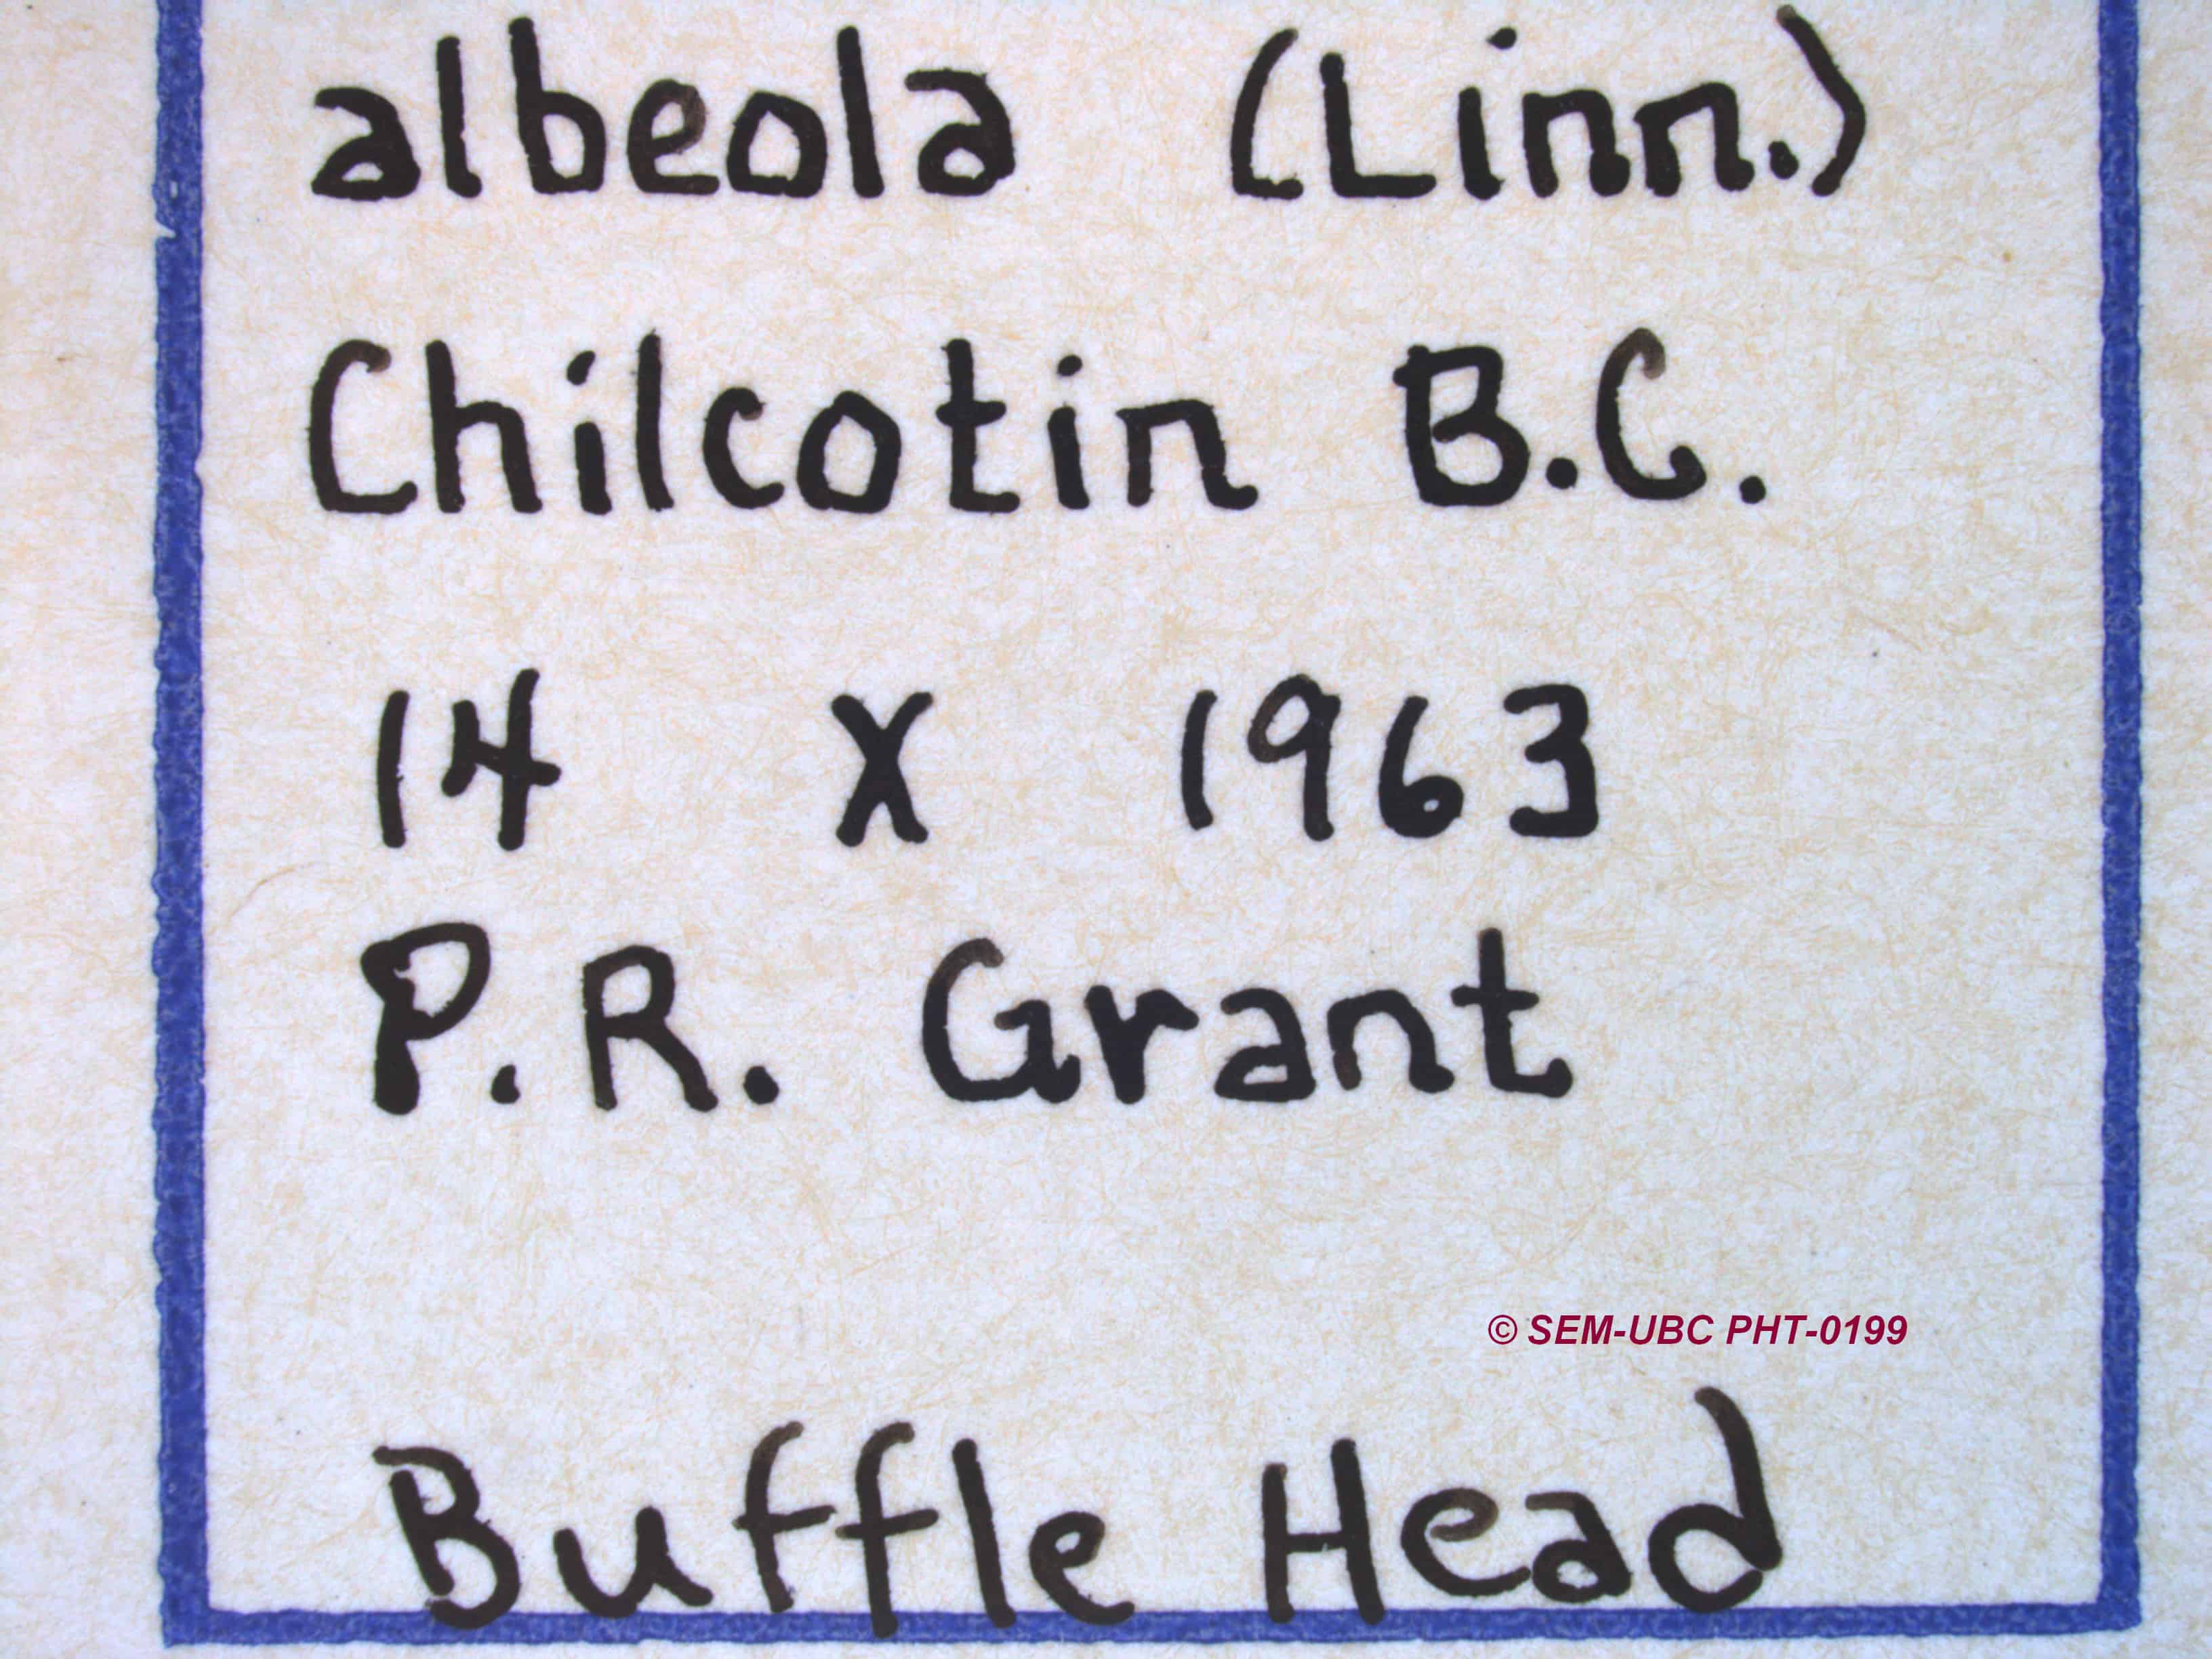 albeola (Linn.)
Chilcotin B.C.
14 X 1963
P.R. Grant
© SEM-UBC PHT-0199
Buffle Head